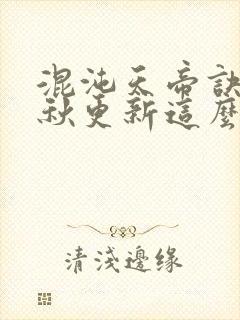 混沌天帝訣
秋更新這麼
清淺邊缘